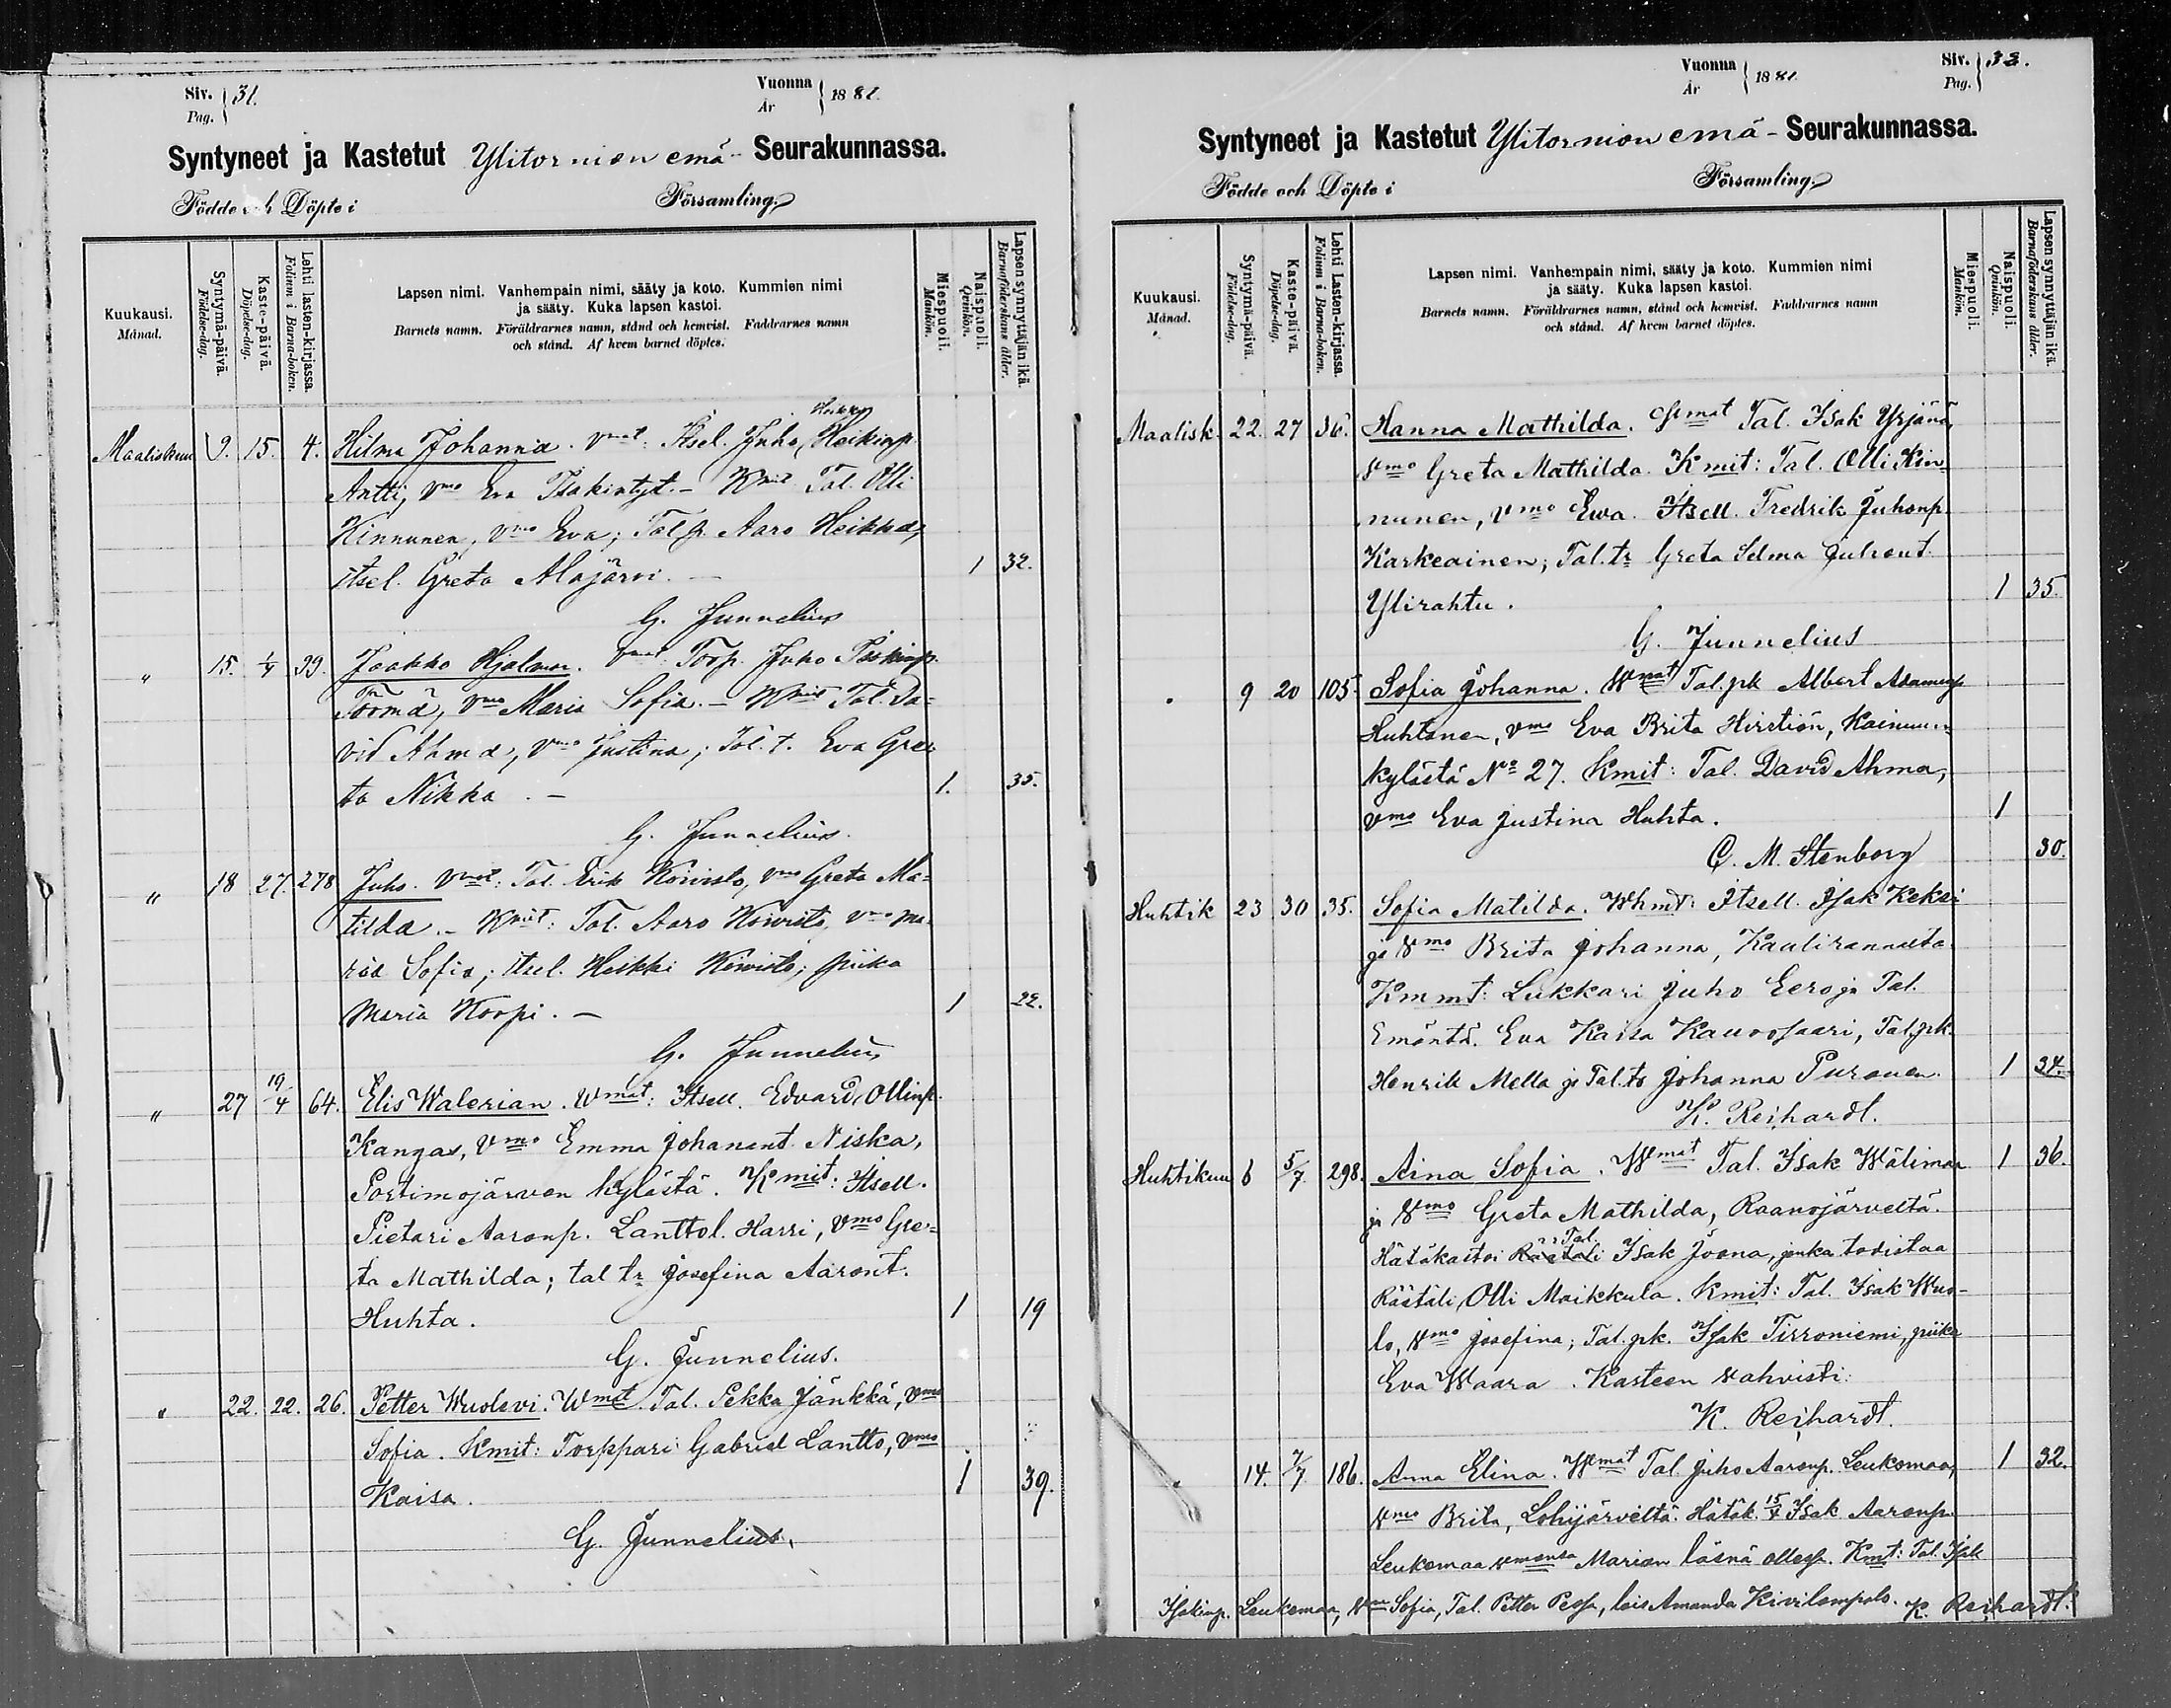 Siv. 31.
Pag.
Vuonna 1881.
År
Syntyneet ja Kastetut Ylitornion emä- Seurakunnassa.
Födde och Döpte i Församling.
Kuukausi.
Månad.
Syntymä-päivä.
Födelse-dag.
Kaste-päivä.
Döpelse-dag.
Lehti lasten-kirjassa.
Folium i Barna-boken.
Lapsen nimi. Vanhempain nimi, sääty ja koto. Kummien nimi
ja sääty. Kuka lapsen kastoi.
Barnets namn. Föräldrarnes namn, stånd och hemvist. Faddrarnes namn
och stånd. Af hvem barnet döptes.
Miespuoli.
Mankön.
Naispuoli.
Qvinkön.
Lapsen synnyttäjän ikä.
Barnaföderskans ålder.
Maaliskuu 9. 15. 4. Hilma Johanna. Vmat: Itsel. Juho Heikinp.
Antti, Vmo Eva Isakintyt. – Kmit Tal. Olli
Kinnunen, Vmo Eva; Tal. p. Aaro Heikka,
itsel. Greta Alajärvi. – 1 32.
G. Junnelius
" 15. 1/4 39. Jaakko Hjalmar. Vmat: Torp. Juho Isakinp.
Törmä, Vmo Maria Sofia. – Kmit Tal. Da=
vid Ahma, Vmo Justina; Tal. t. Eva Gree
ta Nikka. – 1. 35.
G. Junnelius.
" 18 27. 278 Juho. Vmat: Tal. Erik Koivisto, Vmo Greta Ma=
tilda. – Kmit: Tal. Aaro Koivisto, Vmo Ma=
ria Sofia; itsel. Heikki Koivisto; piika
Maria Korpi. – 1 22.
G. Junnelius
" 27 19/4 64. Elis Walerian. Wmat: Itsell. Edvard Ollinp.
Kangas, Vmo Emma Johanant. Niska,
Portimojärven kylästä. Kmit: Itsell.
Pietari Aaronp. Lanttol. Harri, Vmo Gre=
ta Mathilda; tal tr Josefina Aaront.
Huhta. 1 19
G. Junnelius.
" 22. 22. 26. Petter Wuolevi. Wmat. Tal. Pekka Jänkkä, Vmo
Sofia. Kmit: Torppari Gabriel Lantto, Vmo
Kaisa. 1 39.
G. Junnelius.
Vuonna 1881.
År
Siv. 32.
Pag.
Syntyneet ja Kastetut Ylitornion emä- Seurakunnassa.
Födde och Döpte i Församling.
Kuukausi.
Månad.
Syntymä-päivä.
Födelse-dag.
Kaste-päivä.
Döpelse-dag.
Lehti Lasten-kirjassa.
Folium i Barna-boken.
Lapsen nimi. Vanhempain nimi, sääty ja koto. Kummien nimi
ja sääty. Kuka lapsen kastoi.
Barnets namn. Föräldrarnes namn, stånd och hemvist. Faddrarnes namn
och stånd. Af hvem barnet döptes.
Miespuoli.
Mankön.
Naispuoli.
Qvinkön.
Lapsen synnyttäjän ikä.
Barnaföderskans ålder.
Maalisk. 22. 27 36. Hanna Mathilda. Wmat Tal. Isak Yrjänä,
Vmo Greta Mathilda. Kmit: Tal. Olli Kin=
nunen, Vmo Ewa. Itsell. Fredrik Juhonp.
Karkeainen; Tal. tr Greta Selma Juhont.
Ylirahtu. 1 35.
G. Junnelius
" 9 20 105. Sofia Johanna. Wmat Tal. pk Albert Adaminp
Huhtanen, Vmo Eva Brita Hirstiön, Kainuun=
kylästä No 27. Kmit: Tal. David Ahma,
Vmo Eva Justina Huhta. 1
C. M. Stenborg 30.
Huhtik 23 30 35. Sofia Matilda. Whmt: Itsell. Isak Keksi
ja Vmo Brita Johanna, Kaulirannalta.
Kmmt: Lukkari Juho Eero ja Tal.
Emäntä. Eva Kaisa Kauvosaari, Tal. pk.
Henrik Mella ja Tal. tr Johanna Puranen. 1 34.
K. Reihardt.
Huhtikuu 6 5/7. 298. Aina Sofia. Wmat Tal. Isak Wälimaa 1 36.
ja Vmo Greta Mathilda, Raanojärveltä.
Tal.
Hätäkastoi Räätäli Isak Joona, jonka todistaa
Räätäli Olli Maikkula. Kmit: Tal. Isak Wuo-
lo, Vmo Josefina; Tal. pk. Isak Tirroniemi, piika
Eva Waara. Kasteen vahvisti:
K. Reihardt.
" 14. 7/7 186. Anna Elina. Wmat Tal Juho Aaronp. Leukomaa, 1 32.
Vmo Brita, Lohijärveltä. Hätäk. 15/4 Isak Aaronp.
Leukomaa vmonsa Marian läsnä ollessa. Kmt: Tal. Isak
Isakinp. Leukomaa, Vmo Sofia, Tal. Petter Pessa, lois Amanda Kivilompolo. K. Reihardt.